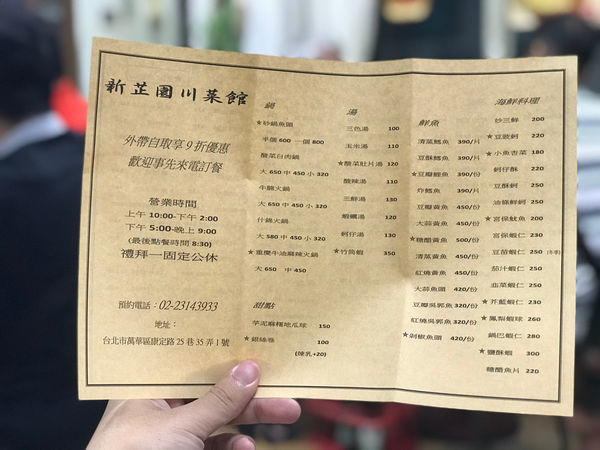 新芷園川菜館
外帶自取享9折優惠
歡迎事先來電訂餐
營業時間
上午 10:00-下午 2:00
下午 5:00-晚上 9:00
(最後點餐時間 8:30)
禮拜一固定公休
預約電話：02-23143933
地址：
台北市萬華區康定路25巷35弄1號
鍋
★砂鍋魚頭
半個 600 一個 800
酸菜白肉鍋
大 650 中 450 小 320
牛腩火鍋
大 650 中 450 小 320
什錦火鍋
大 580 中 450 小 320
★重慶牛油麻辣火鍋
大 650 中 450
甜點
芋泥麻糬地瓜球 150
★銀絲卷 100
(煉乳+20)
湯
三色湯 100
玉米湯 110
★酸菜肚片湯 120
酸辣湯 110
三鮮湯 130
蝦蠣湯 120
蚵仔湯 130
★竹筒蝦 350
鮮魚
清蒸鱈魚 390/片
豆酥鱈魚 390/片
★豆瓣鱈魚 390/份
炸鱈魚 390/片
豆瓣黃魚 450/份
大蒜黃魚 450/份
★糖醋黃魚 500/份
清蒸黃魚 450/份
紅燒黃魚 450/份
大蒜魚頭 420/份
豆瓣吳郭魚 320/份
紅燒吳郭魚 320/份
★剁椒魚頭 420/份
海鮮料理
炒三鮮 200
★豆豉蚵 220
★小魚杏菜 180
蚵仔酥 220
豆酥蚵 250
油條鮮蚵 250
★宮保魷魚 200
宮保蝦仁 230
豆苗蝦仁 250 (冬季)
茄汁蝦仁 250
韭菜蝦仁 230
★芥藍蝦仁 230
★鳳梨蝦球 260
鍋巴蝦仁 280
★鹽酥蝦 300
糖醋魚片 220